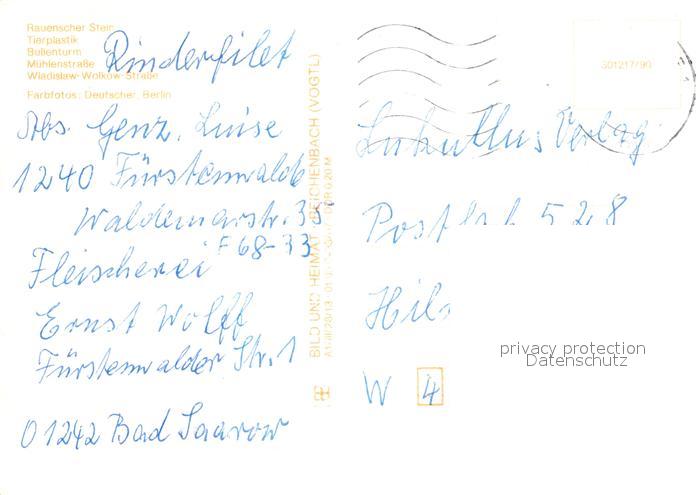 Rauenscher Stein
Tierplastik
Bullenturm
Mühlenstraße
Wladislaw-Wolkow-Straße
Farbfotos: Deutscher, Berlin
Rinderfilet
Abs. Genz, Luise
1240 Fürstenwalde
Waldemarstr. 33
F 68-33
Fleischerei
Ernst Wolff
Fürstenwalder Str. 1
O 1242 Bad Saarow
BILD UND HEIMAT REICHENBACH (VOGTL)
301217/90
Lukullus Verlag
Postf 528
Hil
W 4
privacy protection
Datenschutz